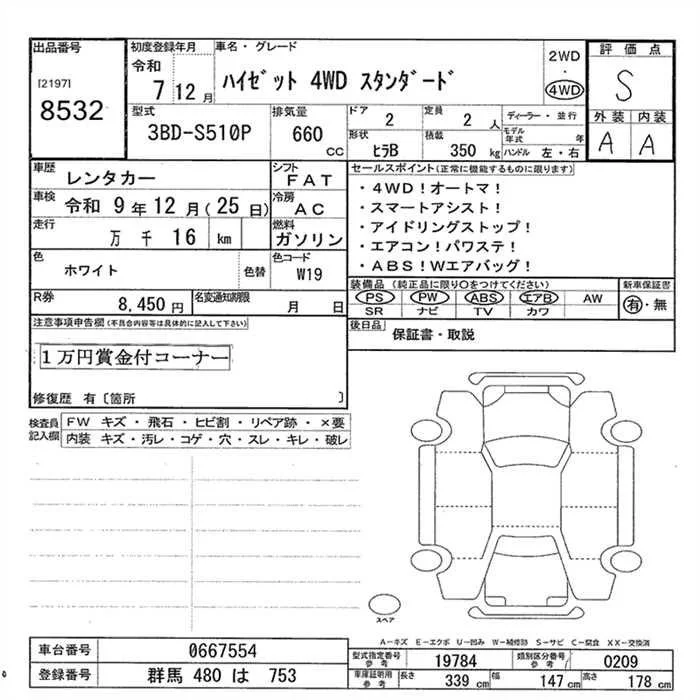 出品番号
[2197]
8532
初度登録年月
令和
7 12 月
車名・グレード
ハイゼット 4WD スタンダード
2WD
・
4WD
評価点
S
外装 内装
A A
型式
3BD-S510P
排気量
660
cc
ドア
2
定員
2 人
形状
ヒラB
積載
350 kg
ディーラー・並行
モデル
年式 年
ハンドル 左・右
車歴
レンタカー
車検 令和 9 年 12 月 (25 日)
走行
万 千 16 km
シフト
FAT
冷房
AC
燃料
ガソリン
色
ホワイト
色替
色コード
W19
R券
8,450 円
名変通知期限
月 日
セールスポイント(正常に機能するものに限ります)
・4WD!オートマ!
・スマートアシスト!
・アイドリングストップ!
・エアコン!パワステ!
・ABS!Wエアバッグ!
装備品 (純正品に限り○をつけてください)
PS PW ABS エアB AW
SR ナビ TV カワ
新車保証書
有・無
後日品
保証書・取説
注意事項申告欄(不具合内容等は具体的に記入して下さい)
1万円賞金付コーナー
修復歴 有〔箇所 〕
検査員
記入欄
FW キズ・飛石・ヒビ割・リペア跡・×要
内装 キズ・汚レ・コゲ・穴・スレ・キレ・破レ
スペア
A-キズ E-エクボ U-凹み W-補修跡 S-サビ C-腐食 XX-交換済
車台番号
0667554
登録番号
群馬 480 は 753
型式指定番号
参考
19784
類別区分番号
参考
0209
車庫証明用
参考
長さ
339 cm
幅
147 cm
高さ
178 cm